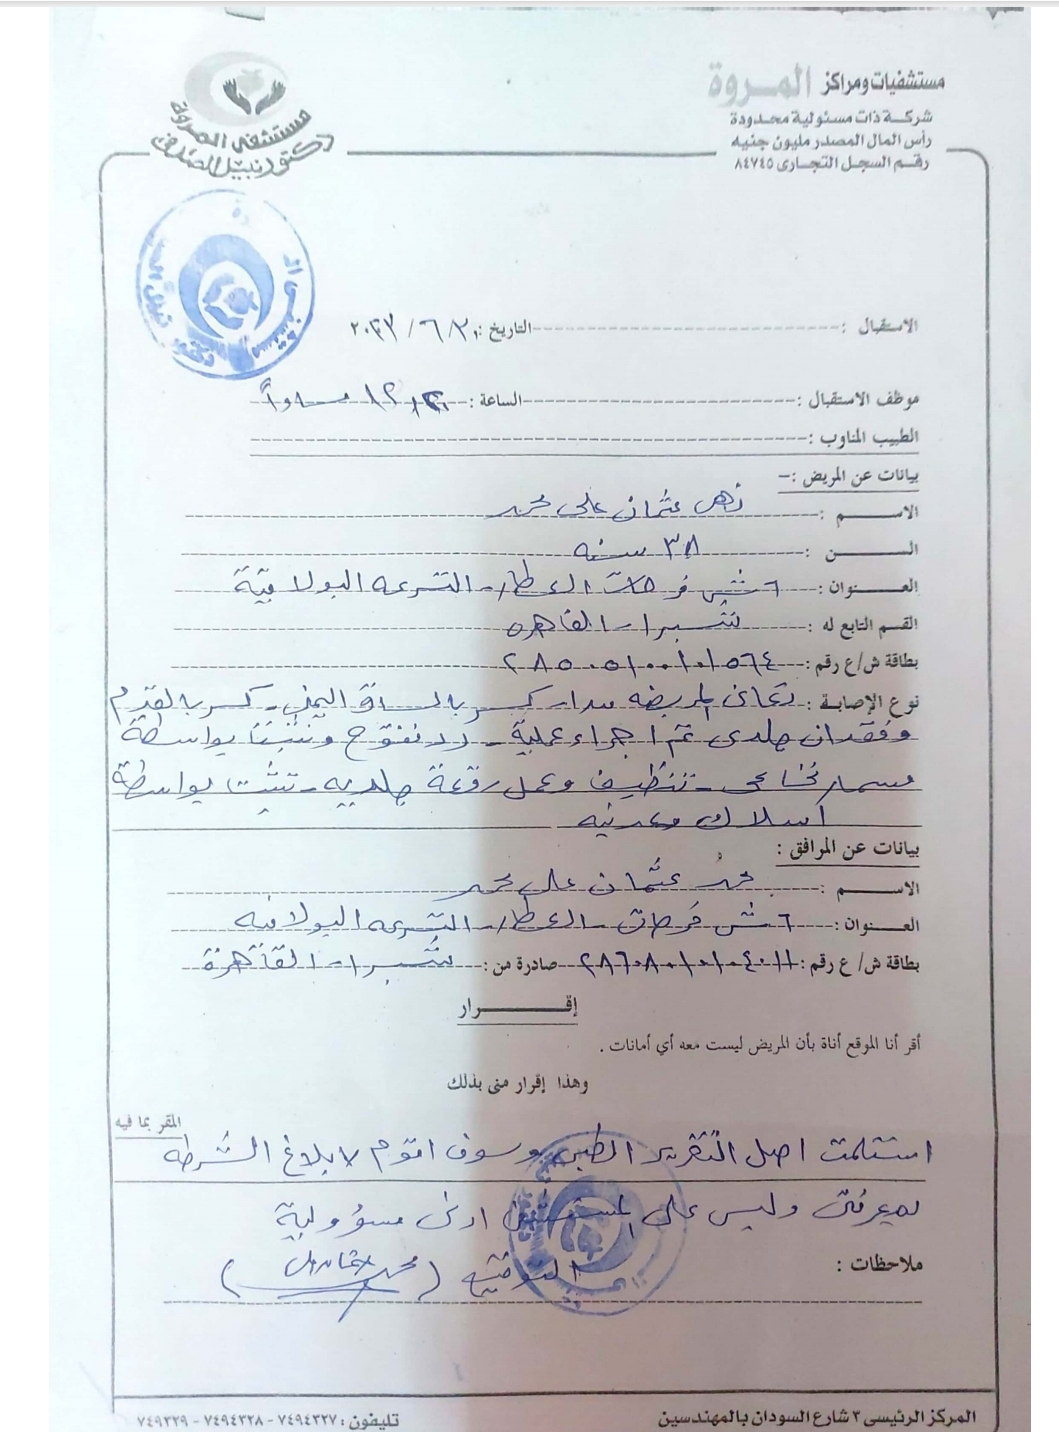 مستشفيات ومراكز المروة
شركة ذات مسئولية محدودة
رأس المال المصدر مليون جنيه
رقم السجل التجارى ٨٤٧٤٥
مستشفى المروة
دكتور نبيل الصدفى
الاستقبال : التاريخ :
موظف الاستقبال : الساعة : مساءاً
الطبيب المناوب :
بيانات عن المريض :-
الاســـم : عثمان على محمد
الـســـن : ٣٨ سنه
العـنـوان : ٦ ش فرحات العطار - الترعه البولاقية
القسم التابع له : شبرا - القاهره
بطاقة ش/ع رقم : ٢٨٥٠٥١٠٠١٠١٥٦٤
نوع الإصابة : تعانى المريضه من كسر بالساق اليمنى - كسر بالقدم
وفقدان جلدى تم اجراء عملية - رد مفتوح وتثبيت بواسطة
مسمار نخاعى - تنظيف وعمل رقعة جلديه - تثبيت بواسطة
اسلاك معدنيه
بيانات عن المرافق :
الاســـم : محمد عثمان على محمد
العـنـوان : ٦ ش فرحات - العطار - الترعه البولاقيه
بطاقة ش/ ع رقم : ٢٨٦٠٨٠١٠١٠٤٠١١ صادرة من : شبرا - القاهرة
إقــــــرار
أقر أنا الموقع أناة بأن المريض ليست معه أي أمانات .
وهذا إقرار منى بذلك
المقر بما فيه
استلمت اصل التقرير الطبى وسوف اقوم لابلاغ الشرطه
بمعرفتى وليس على المستشفى ادنى مسؤولية
ملاحظات : التوقيع ( محمد عثمان )
المركز الرئيسى ٣ شارع السودان بالمهندسين
تليفون : ٧٤٩٤٣٢٧ - ٧٤٩٤٣٢٨ - ٧٤٩٣٢٩